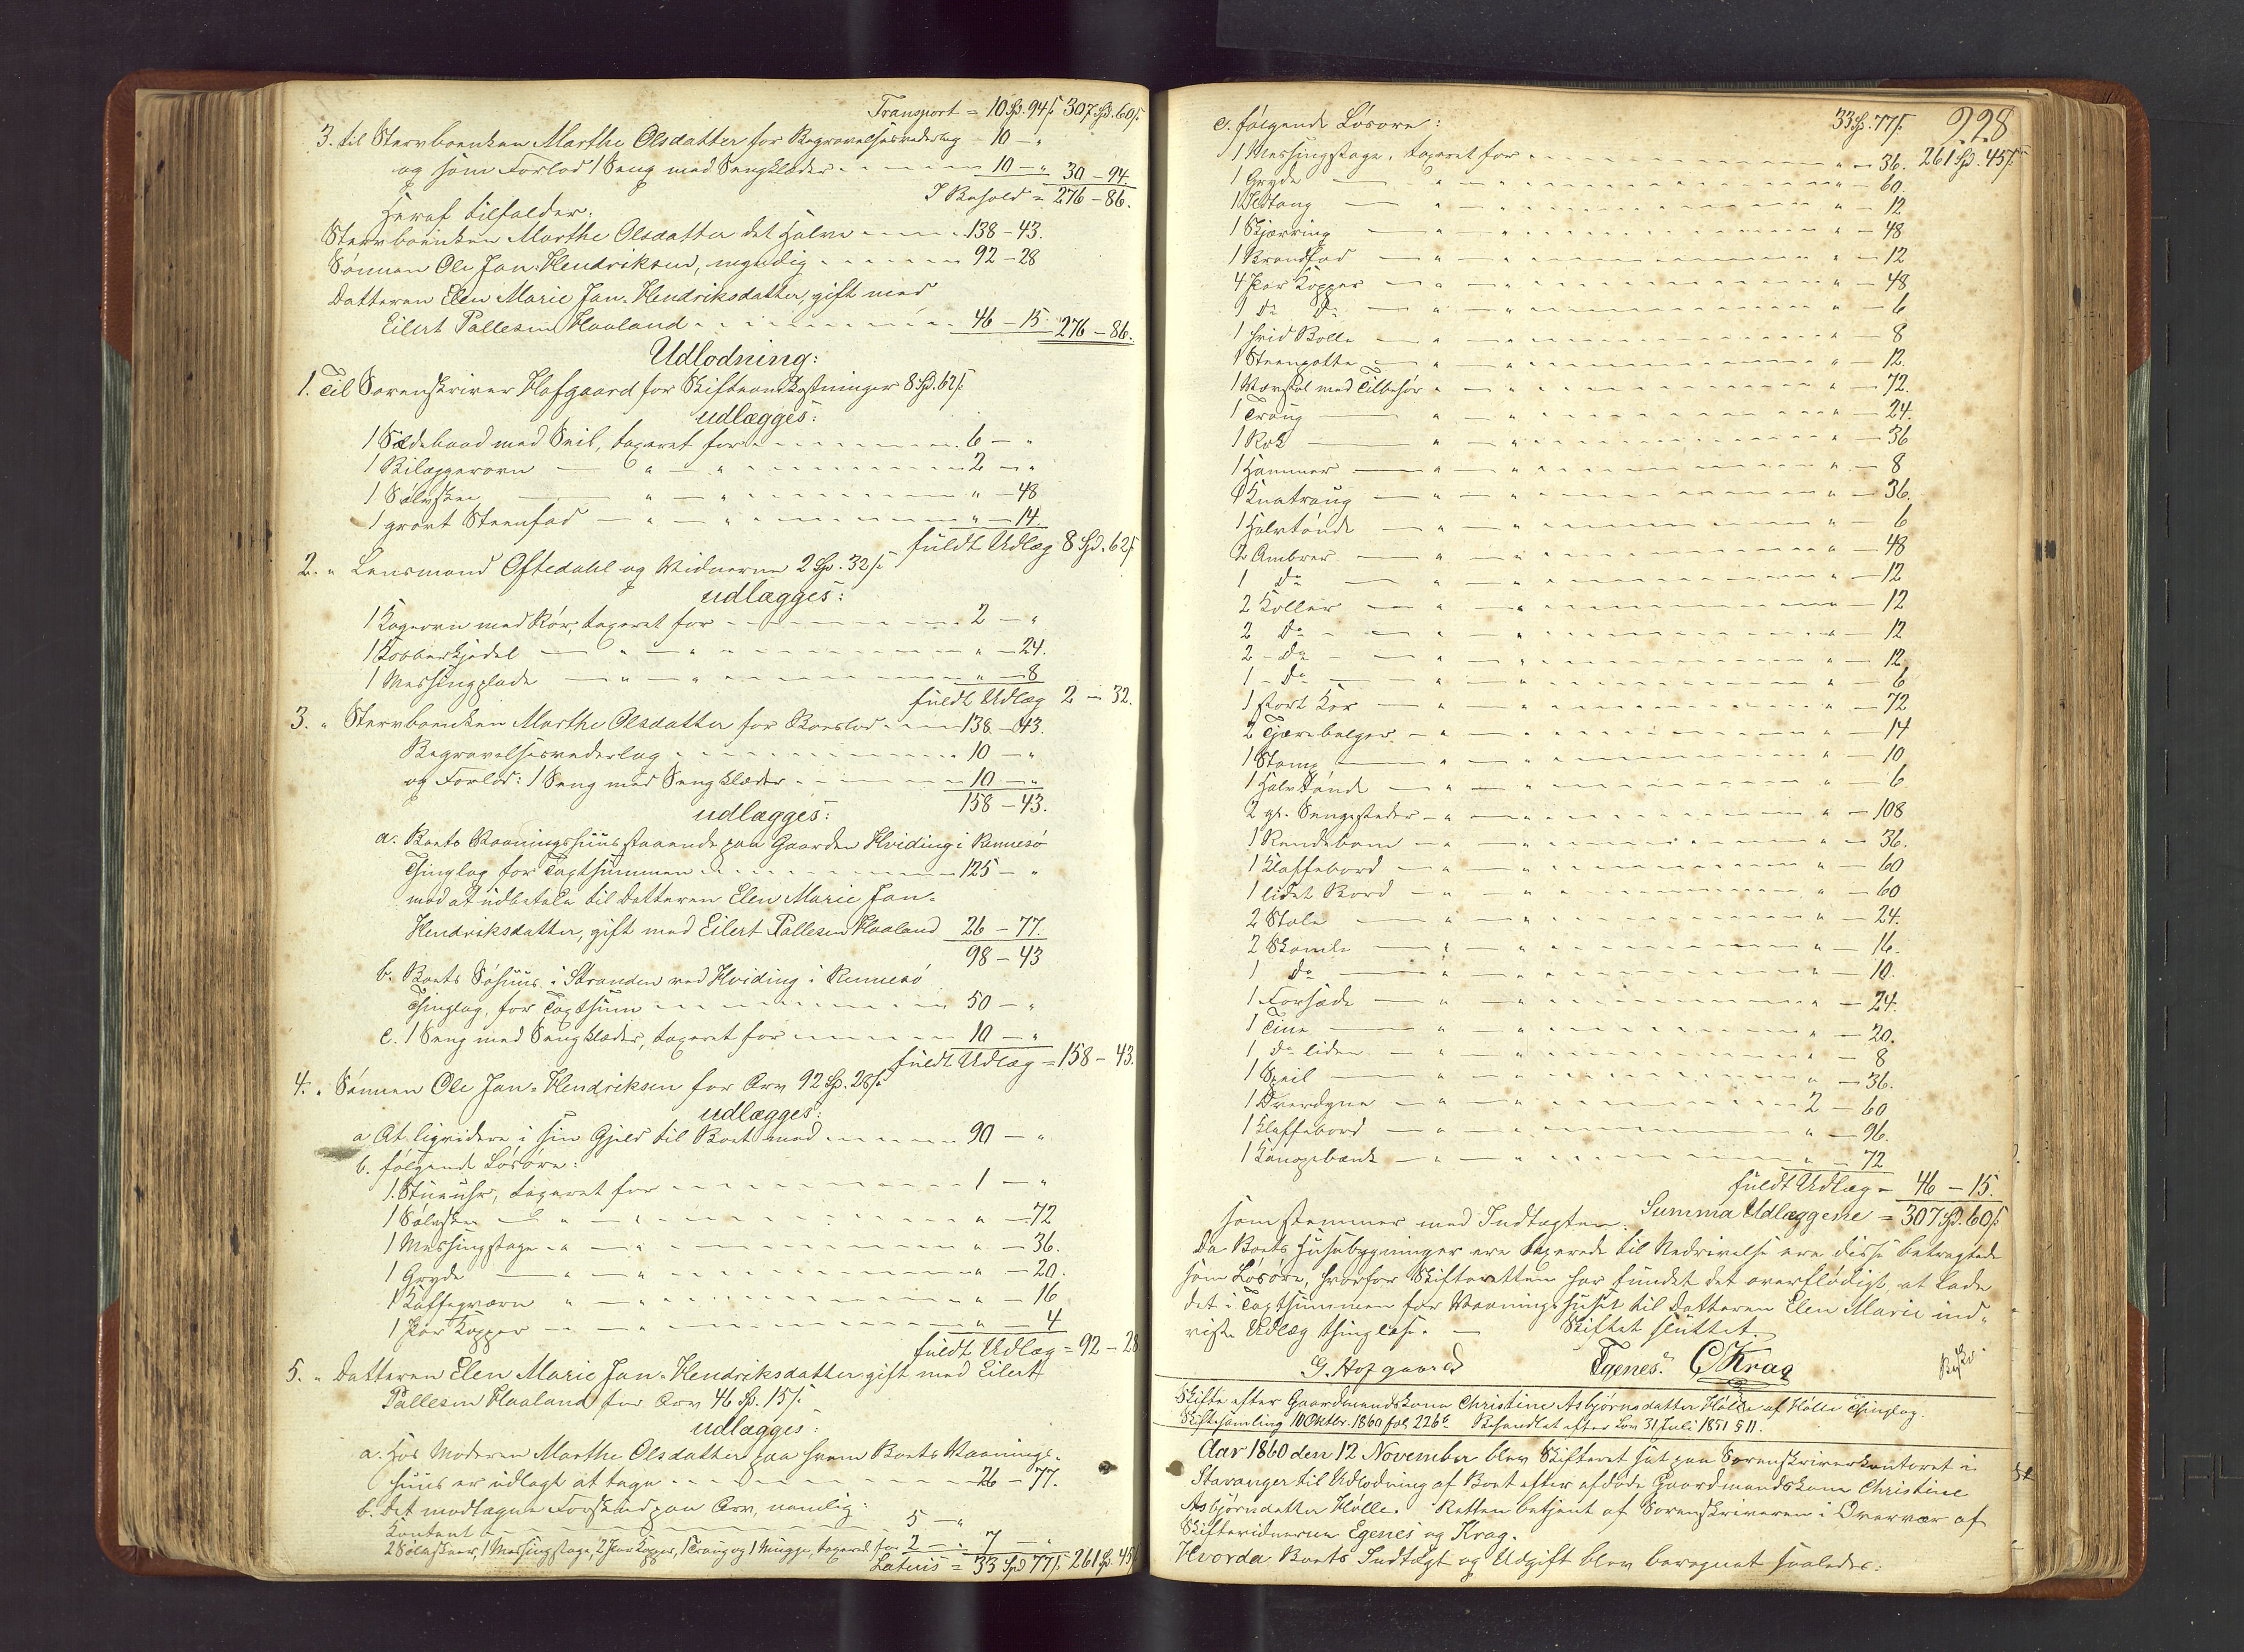 Transport = 10 Spd. 94 ß 307 Spd. 60 ß
3. til Stervboenken Marthe Olsdatter for Begravelsesvederlag - 10 - "
og som Forlod 1 Seng med Sengklæder - 10 - " 30 - 94
I Behold = 276 - 86.
Heraf tilfalder:
Stervboenken Marthe Olsdatter det Halve - 138 - 43.
Sönnen Ole Jan-Hendriksen, myndig - 92 - 28
Datteren Elen Marie Jan-Hendriksdatter, gift med
Eilert Pallesen Haaland - 46 - 15. 276 - 86.
Udlodning:
1. Til Sorenskriver Hofgaard for Skifteomkostninger 8 Spd. 62 ß
udlægges:
1 Sildebaad med Seil, taxeret for - 6 - "
1 Bilæggerovn — " — " - 2 - "
1 Sölvskee — " — " - " - 48
1 grovt Steenfad — " — " - " - 14.
fuldt Udlæg 8 Spd. 62 ß
2. " Lensmand Oftedahl og Vidnerne 2 Spd. 32 ß
udlægges:
1 Kogeovn med Rör, taxeret for - 2 - "
1 Kobberkjedel — " — " - " - 24.
1 Messingplade — " — " - " - 8
fuldt Udlæg 2 - 32.
3. " Stervboenken Marthe Olsdatter for Boeslod - 138 - 43.
Begravelsesvederlag - 10 - "
og Forlod: 1 Seng med Sengklæder - 10 - "
158 - 43.
udlægges:
a. Boets Vaaningshuus staaende paa Gaarden Hviding i Rennesö
Thinglag for Taxtsummen - 125 - "
mod at udbetale til Datteren Elen Marie Jan-
Hendriksdatter, gift med Eilert Pallesen Haaland 26 - 77.
98 - 43
b. Boets Söhuus i Stranden ved Hviding i Rennesö
Thinglag, for Taxtsum - 50 - "
c. 1 Seng med Sengklæder, taxeret for - 10 - "
fuldt Udlæg = 158 - 43.
4. " Sönnen Ole Jan-Hendriksen for Arv 92 Spd. 28 ß
udlægges:
a At liqvidere i sin Gjeld til Boet med - 90 - "
b. følgende Lösöre:
1 Stueuhr, taxeret for - 1 - "
1 Sölvskee — " — " - " - 72
1 Messingstage - " — " - " - 36.
1 Gryde — " — " - " - 20.
1 Kaffeqværn " — " - " - 16
1 Par Kopper — " - " - 4
fuldt Udlæg = 92 - 28
5. " Datteren Elen Marie Jan-Hendriksdatter gift med Eilert
Pallesen Haaland for Arv 46 Spd. 15 ß
udlægges:
a. Hos Moderen Marthe Olsdatter paa hvem Boets Vaanings-
huus er udlagt at tage - 26 - 77.
b. Det modtagne Forskud paa Arv, nemlig:
Contant - 5 - "
2 Sölvskeer, 1 Messingstage, 2 Par Kopper, 1 Traug og 1 Mugge, taxeret for 2 - " 7 - "
Lateris = 33 Spd 77 ß 261 Spd. 45 ß
228
c. følgende Lösöre: 33 Spd. 77 ß
1 Messingstage, taxeret for - " - 36. 261 Spd. 45 ß
1 Gryde — " — " - " - 60.
1 Ildtang — " — " - " - 12
1 Skjærring — " — " - " - 48
1 Brandfad — " — " - " - 12
4 Par Kopper — " — " - " - 48
1 Do Do — " — " - " - 6
1 hvid Bolle — " — " - " - 8
1 Steenpotte — " — " - " - 12.
1 Vævstol med Tilbehör " - " - " - 72.
1 Traug — " — " - " - 24.
1 Rok — " — " - " - 36
1 Hammer — " — " - " - 8
1 Knatraug — " — " - " - 36.
1 Halvtönde — " — " - " - 6
2 Ambrer — " — " - " - 48
1 Do — " — " - " - 12
2 Koller — " — " - " - 12
2 Do — " — " - " - 12
2 - Do — " — " - " - 12
1 - Do — " — " - " - 6
1 stort Kar — " — " - " - 72
2 Tjærebolger — " — " - " - 14
1 Stamp — " — " - " - 10
1 Halvtönde — " — " - " - 6
2 gl. Sengesteder - " — " - " - 108
1 Rendebom — " — " - " - 36.
1 Klaffebord — " — " - " - 60
1 lidet Bord — " — " - " - 60
2 Stole — " — " - " - 24.
2 Skamle — " — " - " - 16.
1 Do — " — " - " - 10.
1 Forsæde — " — " - " - 24.
1 Tine — " — " - " - 20.
1 Do liden — " — " - " - 8
1 Speil — " — " - " - 36.
1 Overdyne — " — " - 2 - 60
1 Klaffebord — " — " - " - 96.
1 Kanapebænk — " — " - " - 72
fuldt Udlæg = 46 - 15.
Summa Udlæggene = 307 Spd. 60 ß
som stemmer med Indtægten.
Da Boets Huusbygninger ere taxerede til Nedrivelse ere disse betragtede
som Lösöre, hvorfor Skifteretten har fundet det overflödigt, at lade
det i Taxtsummen for Vaaningshuset til Datteren Elen Marie ind-
viste Udlæg thinglæse. — Skiftet sluttet.
G. Hofgaard Egenes. C Krag
Skifte efter Gaardmandskone Christine Asbjörnsdatter Hölle af Hölle Thinglag
Skiftesamling 10 Oktbr. 1860 fol. 226 b Behandlet efter Lov 31 Juli 1851 § 11.
Aar 1860 den 12 November blev Skifteret sat paa Sorenskriverkontoret i
Stavanger til Udlodning af Boet efter afdöde Gaardmandskone Christine
Asbjörnsdatter Hölle. Retten betjent af Sorenskriveren i Overvær af
Skiftevidnerne Egenes og Krag.
Hvorda Boets Indtægt og Udgift blev beregnet saaledes: